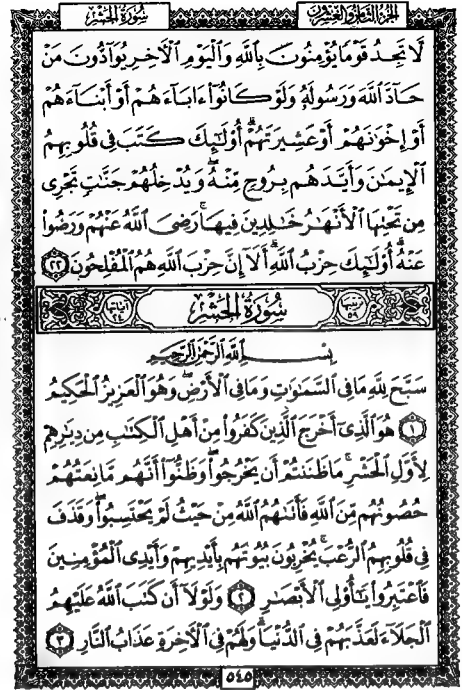 سُورَةُ الحَشۡرِ
الجُزءُ الثَّامِنُ وَالعِشۡرُونَ
لَّا تَجِدُ قَوۡمٗا يُؤۡمِنُونَ بِٱللَّهِ وَٱلۡيَوۡمِ ٱلۡأٓخِرِ يُوَآدُّونَ مَنۡ
حَآدَّ ٱللَّهَ وَرَسُولَهُۥ وَلَوۡ كَانُوٓاْ ءَابَآءَهُمۡ أَوۡ أَبۡنَآءَهُمۡ
أَوۡ إِخۡوَٰنَهُمۡ أَوۡ عَشِيرَتَهُمۡۚ أُوْلَٰٓئِكَ كَتَبَ فِي قُلُوبِهِمُ
ٱلۡإِيمَٰنَ وَأَيَّدَهُم بِرُوحٖ مِّنۡهُۖ وَيُدۡخِلُهُمۡ جَنَّٰتٖ تَجۡرِي
مِن تَحۡتِهَا ٱلۡأَنۡهَٰرُ خَٰلِدِينَ فِيهَاۚ رَضِيَ ٱللَّهُ عَنۡهُمۡ وَرَضُواْ
عَنۡهُۚ أُوْلَٰٓئِكَ حِزۡبُ ٱللَّهِۚ أَلَآ إِنَّ حِزۡبَ ٱللَّهِ هُمُ ٱلۡمُفۡلِحُونَ ٢٢
ترتيبها ٥٩ سُورَةُ الحَشۡرِ آياتها ٢٤
بِسۡمِ ٱللَّهِ ٱلرَّحۡمَٰنِ ٱلرَّحِيمِ
سَبَّحَ لِلَّهِ مَا فِي ٱلسَّمَٰوَٰتِ وَمَا فِي ٱلۡأَرۡضِۖ وَهُوَ ٱلۡعَزِيزُ ٱلۡحَكِيمُ
١ هُوَ ٱلَّذِيٓ أَخۡرَجَ ٱلَّذِينَ كَفَرُواْ مِنۡ أَهۡلِ ٱلۡكِتَٰبِ مِن دِيَٰرِهِمۡ
لِأَوَّلِ ٱلۡحَشۡرِۚ مَا ظَنَنتُمۡ أَن يَخۡرُجُواْۖ وَظَنُّوٓاْ أَنَّهُم مَّانِعَتُهُمۡ
حُصُونُهُم مِّنَ ٱللَّهِ فَأَتَىٰهُمُ ٱللَّهُ مِنۡ حَيۡثُ لَمۡ يَحۡتَسِبُواْۖ وَقَذَفَ
فِي قُلُوبِهِمُ ٱلرُّعۡبَۚ يُخۡرِبُونَ بُيُوتَهُم بِأَيۡدِيهِمۡ وَأَيۡدِي ٱلۡمُؤۡمِنِينَ
فَٱعۡتَبِرُواْ يَٰٓأُوْلِي ٱلۡأَبۡصَٰرِ ٢ وَلَوۡلَآ أَن كَتَبَ ٱللَّهُ عَلَيۡهِمُ
ٱلۡجَلَآءَ لَعَذَّبَهُمۡ فِي ٱلدُّنۡيَاۖ وَلَهُمۡ فِي ٱلۡأٓخِرَةِ عَذَابُ ٱلنَّارِ ٣
٥٤٥